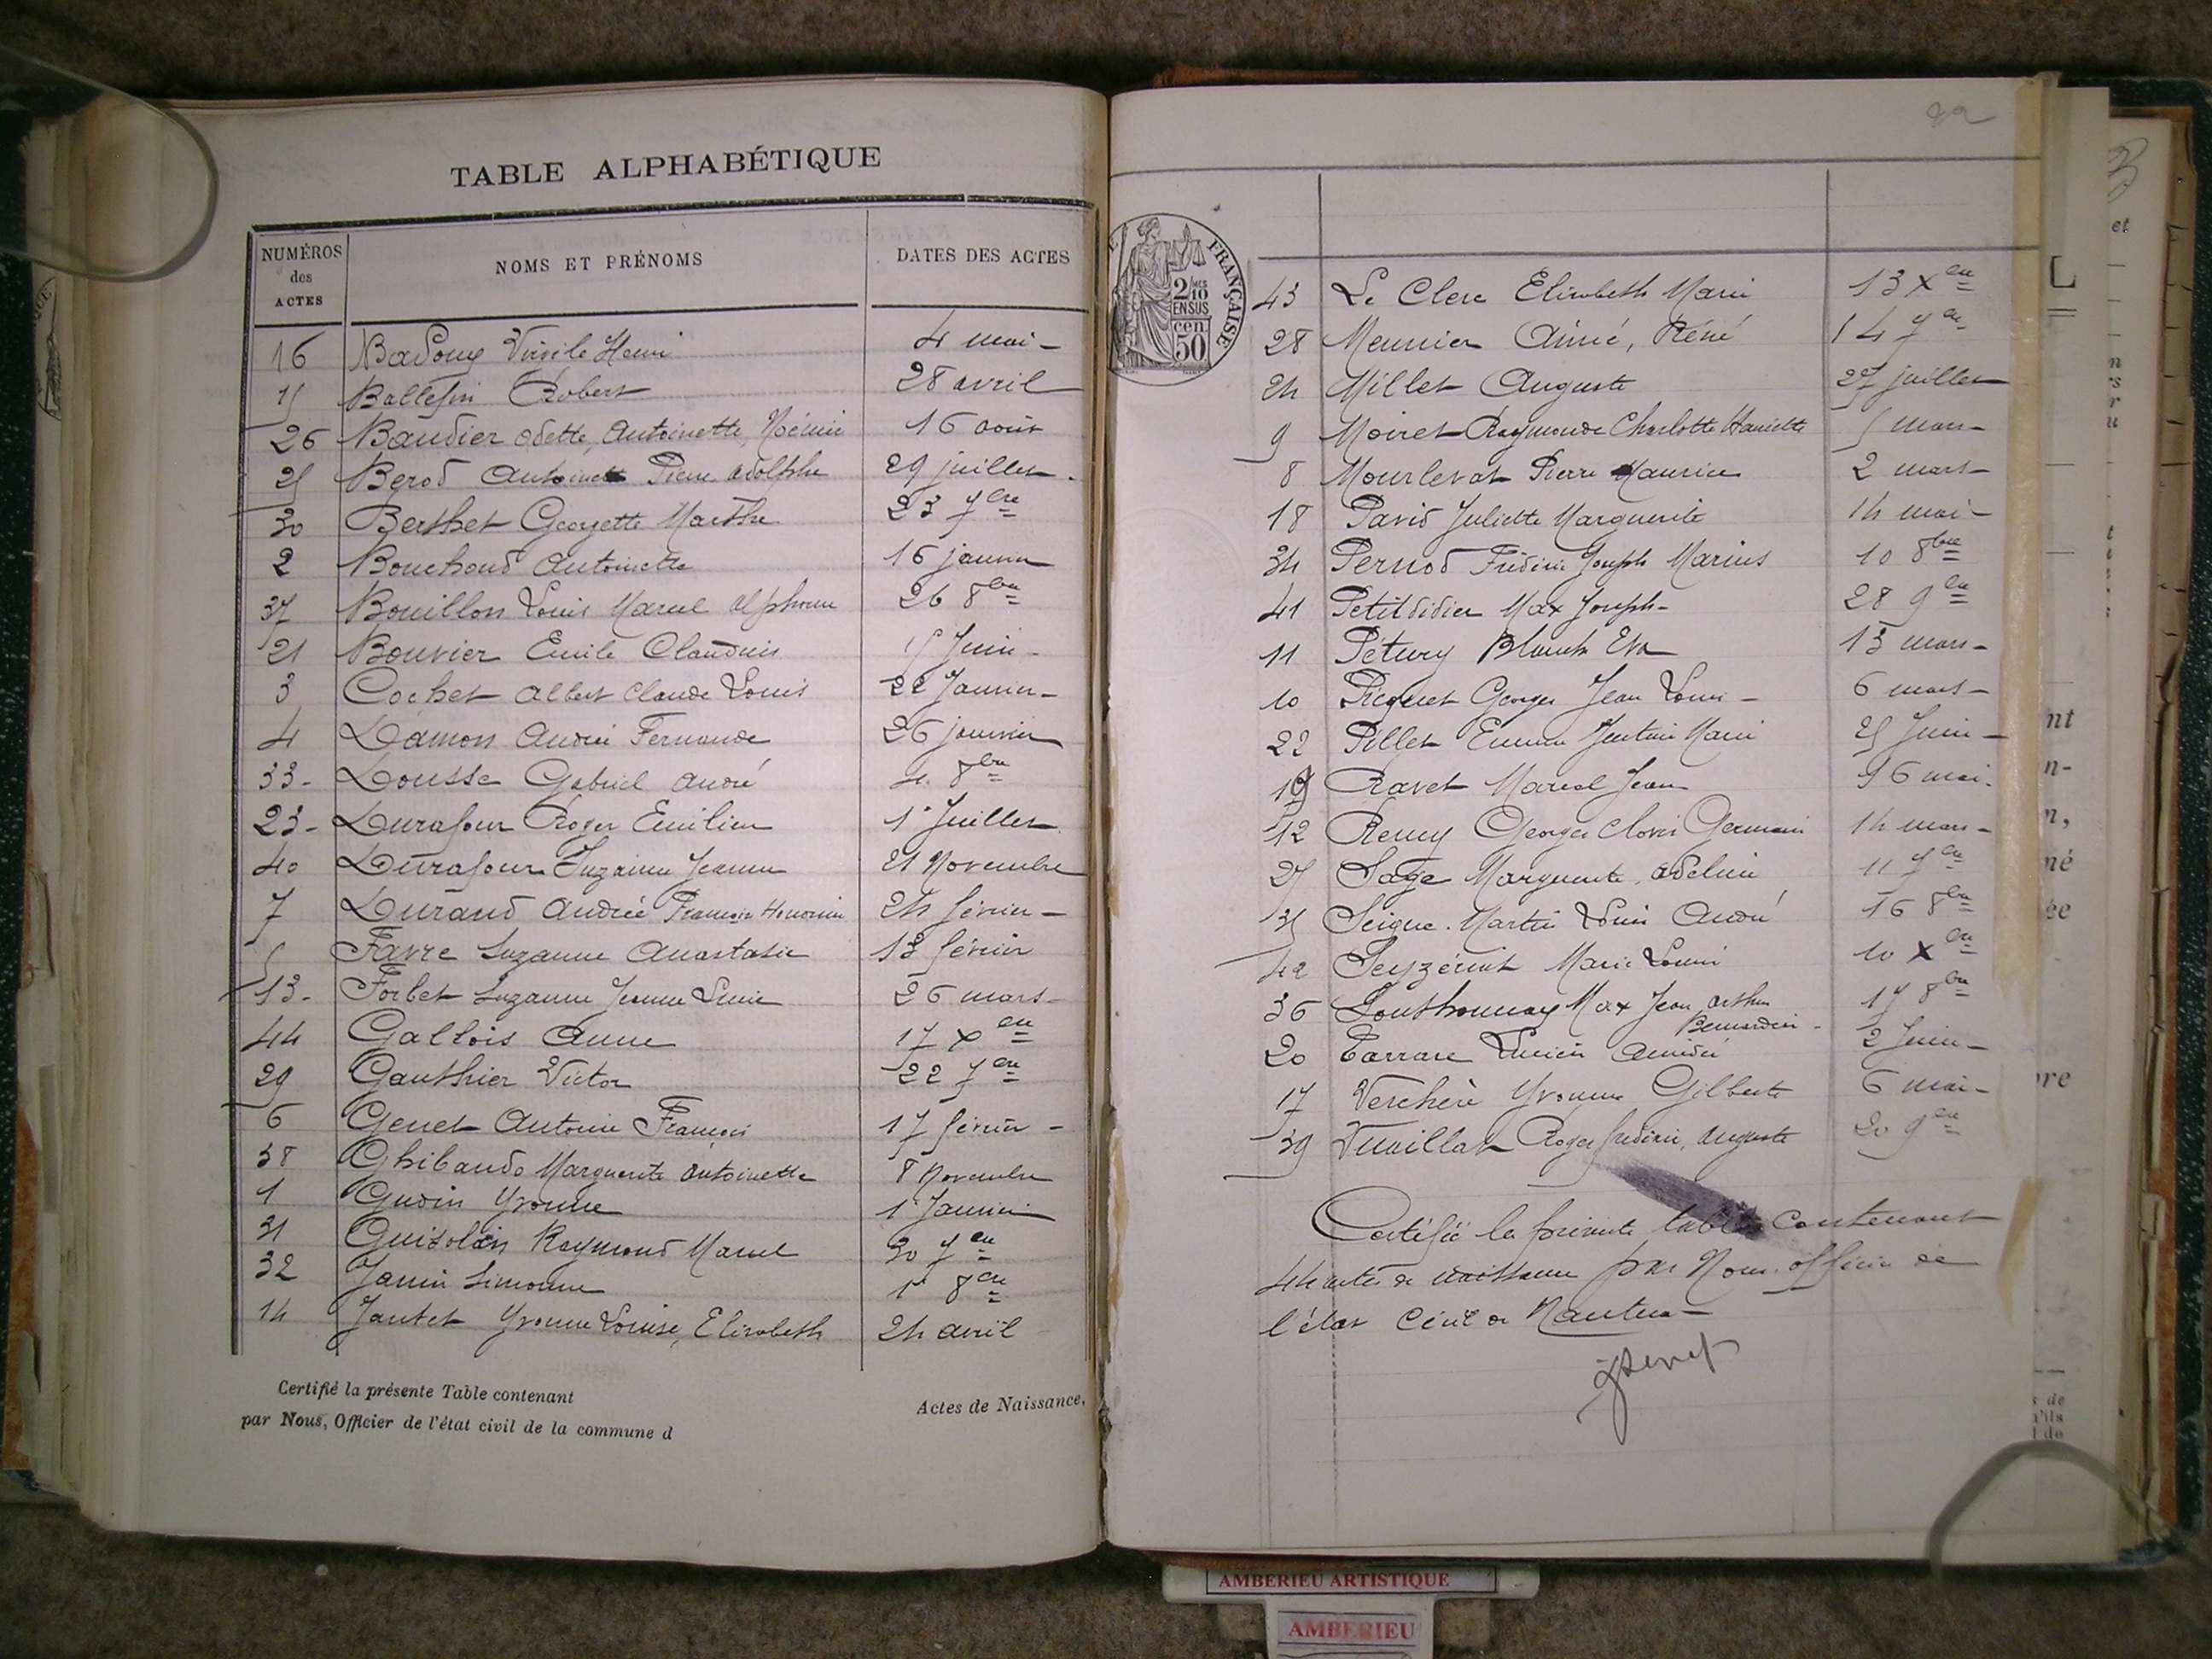 TABLE ALPHABÉTIQUE
NUMÉROS des ACTES
NOMS ET PRÉNOMS
DATES DES ACTES
16 Badouy Virgile Henri 4 mai -
15 Ballefin Robert 28 avril
26 Baudier Odette, Antoinette, Noémie 16 août
25 Berod Pierre Adolphe 29 juillet
30 Berthet Georgette Marthe 23 7bre
2 Bouchoud Antoinette 16 janvier
37 Bouillon Louis Marcel Alphonse 26 8bre
21 Bouvier Emile Claudius 15 Juin -
3 Cochet Albert Claude Louis 22 Janvier -
4 Damon Andrée Fernande 26 janvier
33 - Dousse Gabriel André 4 8bre
23 - Durafour Roger Emilien 1er Juillet
40 Durafour Suzanne Jeanne 21 Novembre
7 Durand Andrée 24 février -
5 Favre Suzanne Anastasie 13 février
13 - Forbet Suzanne Jeanne Lucie 26 mars -
44 Gallois Anne 17 Xbre
29 Gauthier Victor 22 7bre
6 Genet Antoine François 17 février -
38 Ghibaudo Marguerite Antoinette 8 Novembre
1 Gudin Yvonne 1er Janvier
31 Guidolin Raymond Marcel 30 7bre
32 Janin Simonne 1er 8bre
14 Jantet Yvonne Louise, Elisabeth 24 avril
Certifié la présente Table contenant Actes de Naissance,
par Nous, Officier de l'état civil de la commune d
FRANÇAISE
2/10 MES
EN SUS
50 cen.
43 Le Clerc Elisabeth Marie 13 Xbre
28 Meunier Aimé, Réné 14 7bre
24 Millet Auguste 27 juillet
9 Moiret Raymonde Charlotte Henriette 5 mars -
8 Mourlevat Pierre Maurice 2 mars -
18 Pavid Juliette Marguerite 14 mai -
34 Pernod Frédéric Joseph Marius 10 8bre
41 Petitdidier Max Joseph - 28 9bre
11 Pétury Blanche Eva 13 mars -
10 Picquet Georges Jean Louis - 6 mars -
22 Pillet Justine Marie 25 Juin -
19 Ravet Marcel Jean 16 mai -
12 Remy Georges Clovis Germain 14 mars -
27 Sage Marguerite, Adeline 11 7bre
35 Seigne-Martin Louis André 16 8bre
42 Seyzériat Marie Louise 10 Xbre
36 Southonnay Max Jean Arthur 17 8bre
Bernardin -
20 Tarrare Lucien Amédée 2 Juin -
17 Verchère Yvonne Gilberte 6 mai -
39 Vuaillat Roger Frédéric, Auguste 20 9bre
Certifié la présente table contenant
44 actes de naissance par Nous officier de
l'état civil de Nantua -
et
nt
n-
n,
né
ée
bre
s de
u'ils
l de
AMBERIEU ARTISTIQUE
AMBERIEU